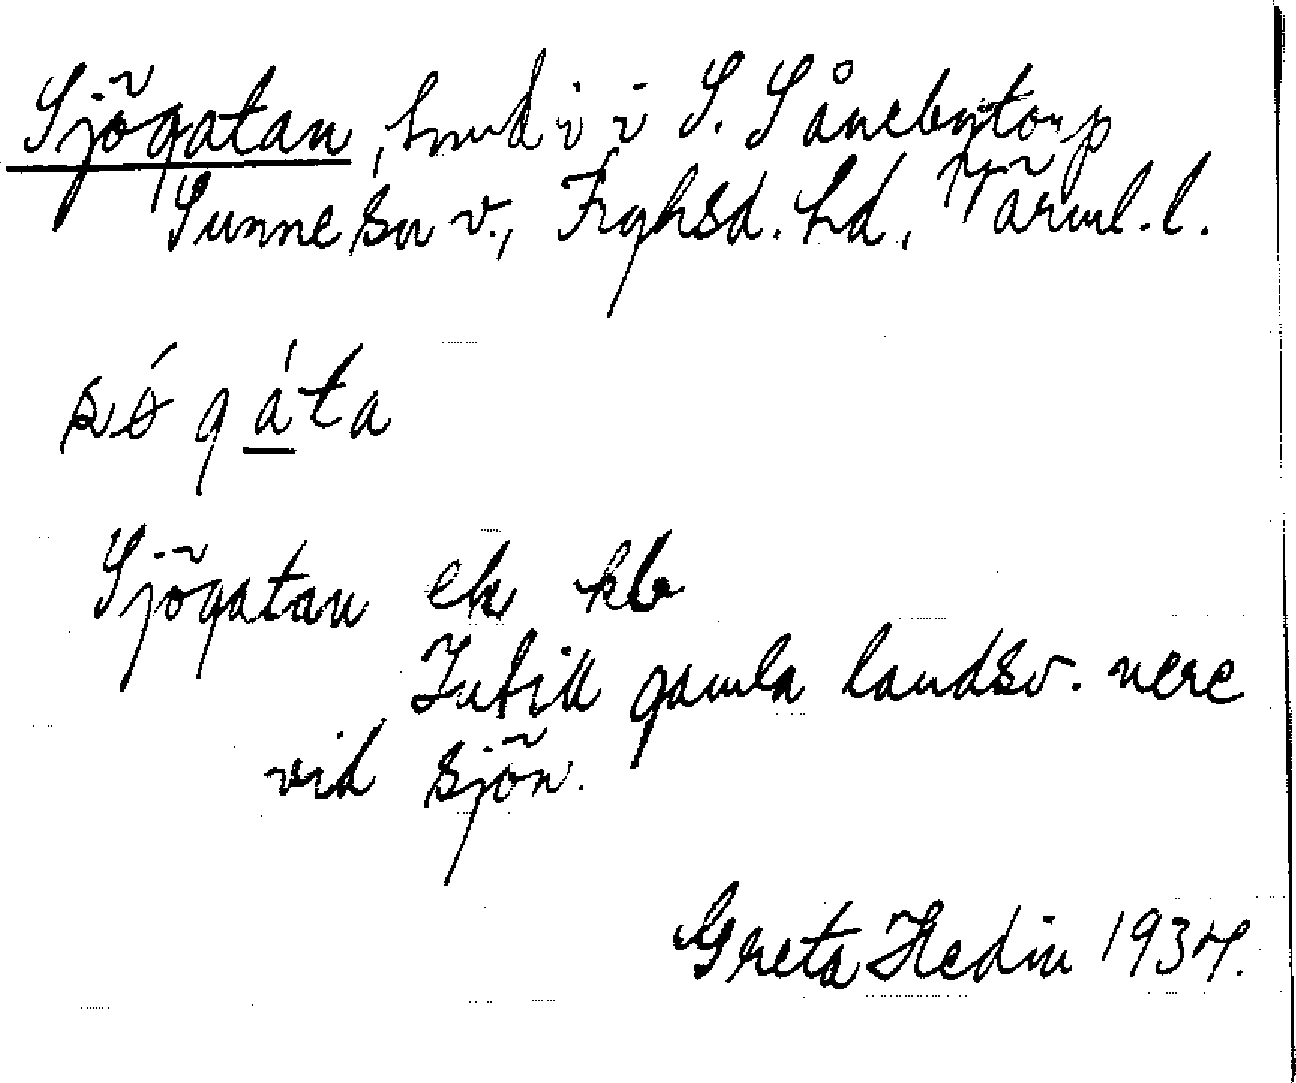 Sjögatan, hmd i i S. Sånebytorp
Sunne sn v., Fryksd. hd, Värml. l.
gáta
Sjögatan ek kb
Intill gamla landsv. nere
vid sjön.
Greta Hedin 1934.